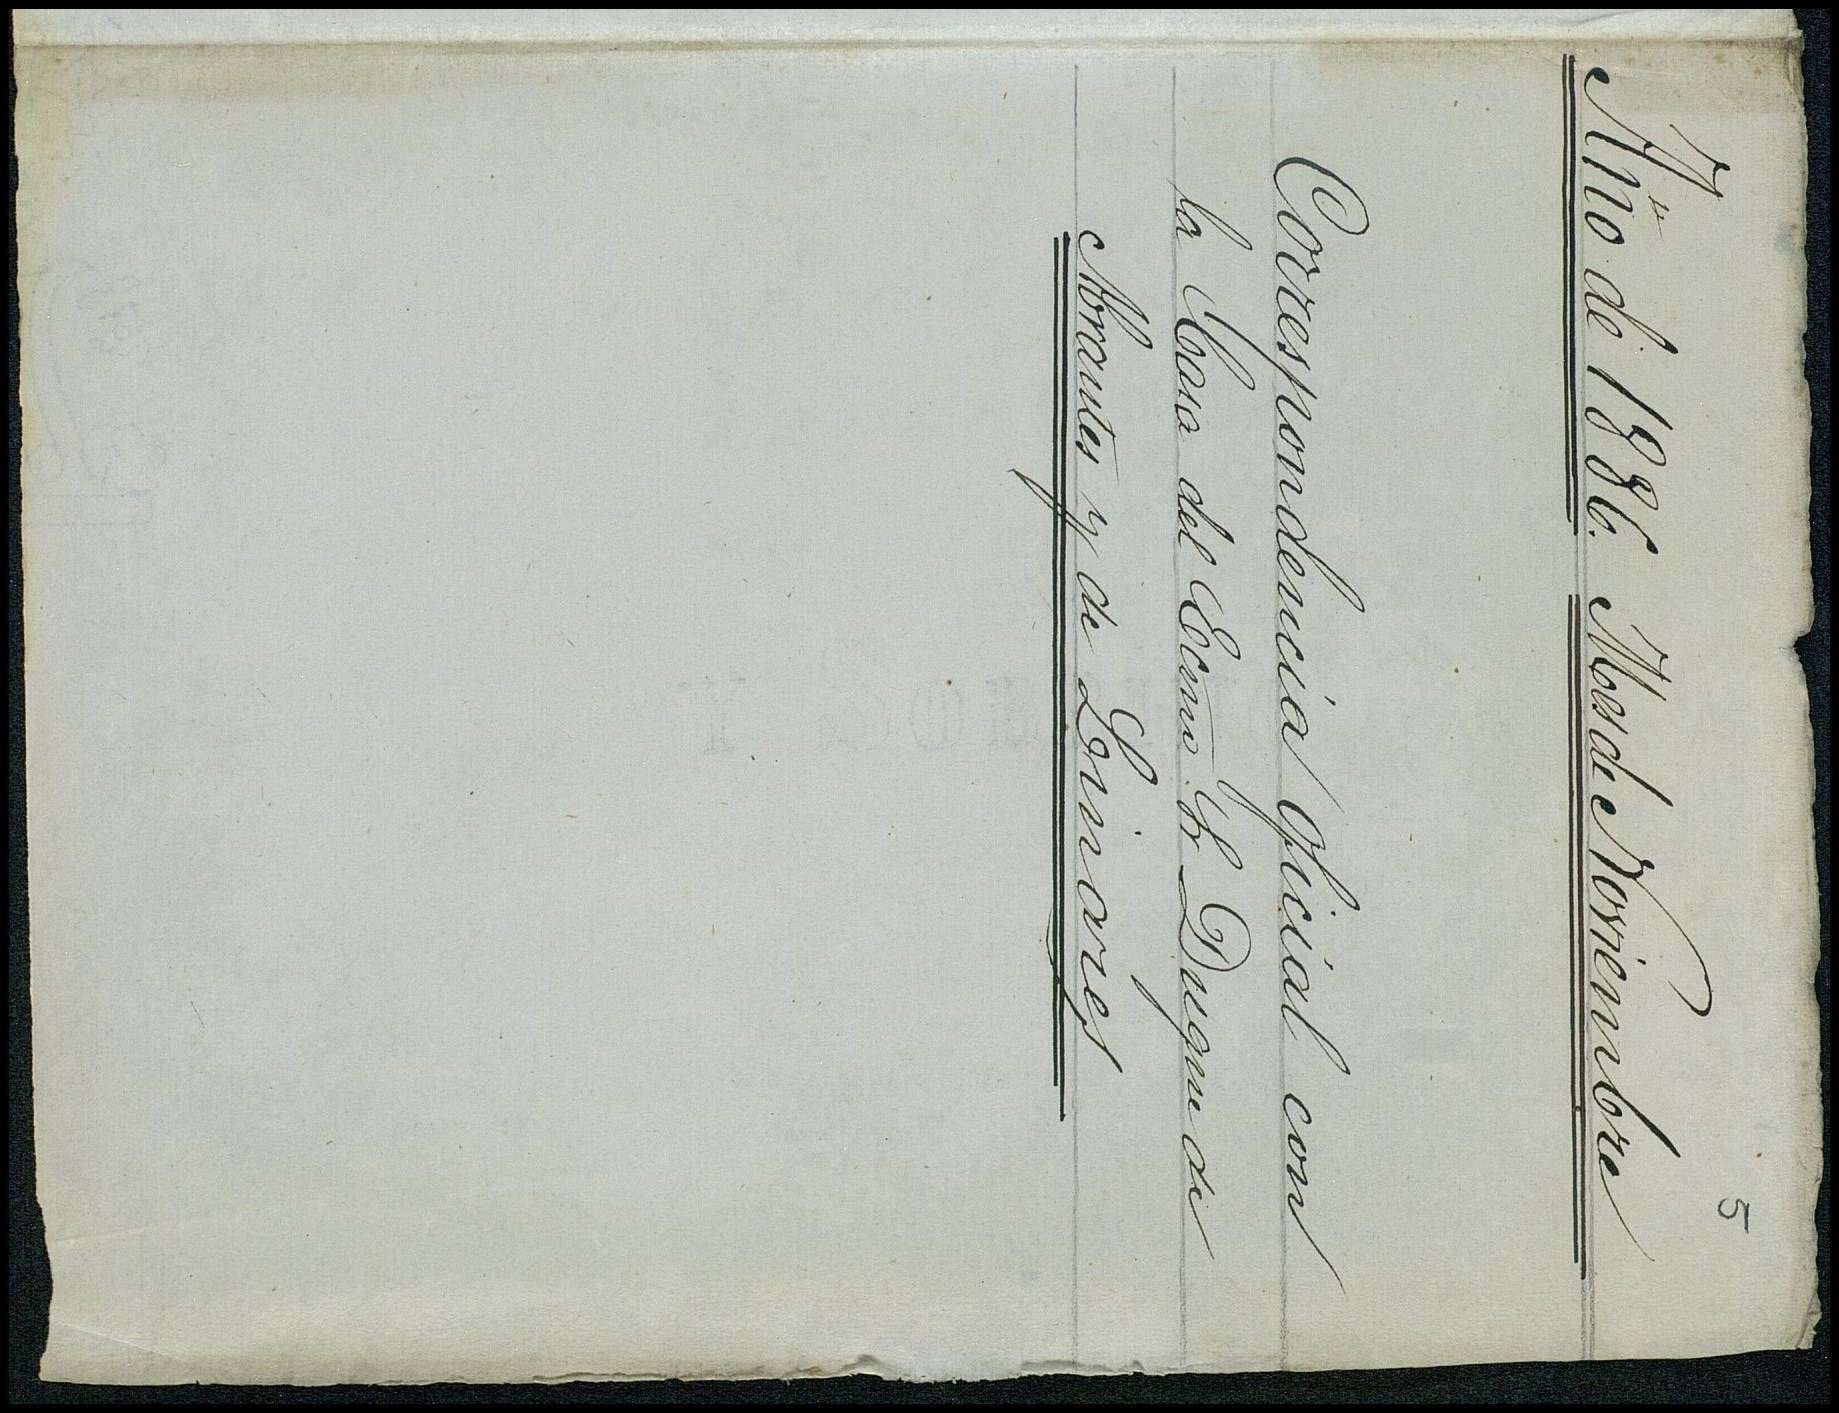 5
Año de 1886. Mes de Noviembre
Correspondencia oficial con
la Casa del Ecmo. Sr. Duque de
Abrantes y de Linares